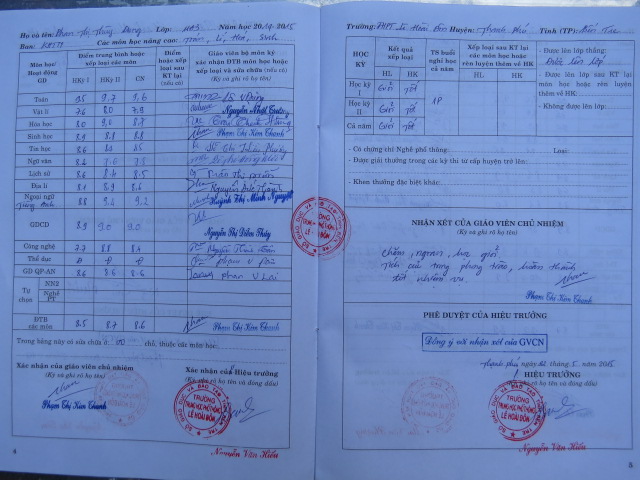 Họ và tên: Phan Thị Thùy Dung Lớp: Năm học 2014-2015
Ban: KHTN Các môn học nâng cao: Toán, Lí, Hóa, Sinh
Môn học/ Hoạt động GD
Điểm trung bình hoặc xếp loại các môn
HKỳ I HKỳ II CN
Điểm hoặc xếp loại sau KT lại (nếu có)
Giáo viên bộ môn ký xác nhận ĐTB môn học hoặc xếp loại và sửa chữa (nếu có)
(Ký và ghi rõ họ tên)
Toán 9.5 9.7 9.6
Vật lí 7.6 8.0 7.9 Nguyễn Nhật
Hóa học 8.0 9.0 8.7
Sinh học 8.9 8.8 8.8 Phạm Thị Kim Thanh
Tin học 8.6 8.4 8.5
Ngữ văn
Lịch sử 8.6 8.4 8.5
Địa lí 8.1 8.9 8.6
Ngoại ngữ Tiếng Anh 8.8 9.4 9.2 Huỳnh Thị Minh Nguyệt
GDCD 8.9 9.0 9.0 Nguyễn Thị Diễm Thúy
Công nghệ 7.7 8.8 8.4
Thể dục Đ Đ Đ
GD QP-AN 8.6 8.6 8.6 Phan V Lai
Tự chọn
NN2
Nghề PT
ĐTB các môn 8.5 8.7 8.6 Phạm Thị Kim Thanh
Trong bảng này có sửa chữa ở chỗ, thuộc các môn học:
Xác nhận của giáo viên chủ nhiệm
(Ký và ghi rõ họ tên)
Phạm Thị Kim Thanh
Xác nhận của Hiệu trưởng
(Ký, ghi rõ họ tên và đóng dấu)
TRƯỜNG TRUNG HỌC PHỔ THÔNG LÊ HOÀI ĐÔN
Nguyễn Văn Hiếu
4
Trường: THPT Lê Hoài Đôn Huyện: Thạnh Phú Tỉnh (TP): Bến Tre
HỌC KỲ
Kết quả xếp loại
HL HK
TS buổi nghỉ học cả năm
Xếp loại sau KT lại các môn học hoặc rèn luyện thêm về HK
HL HK
Học kỳ I Giỏi Tốt
Học kỳ II Giỏi Tốt 1P
Cả năm Giỏi Tốt
- Được lên lớp thẳng:
Được lên lớp
- Được lên lớp sau KT lại môn học hoặc rèn luyện thêm về HK:
- Không được lên lớp:
- Có chứng chỉ Nghề phổ thông: Loại:
- Được giải thưởng trong các kỳ thi từ cấp huyện trở lên:
- Khen thưởng đặc biệt khác:
NHẬN XÉT CỦA GIÁO VIÊN CHỦ NHIỆM
(Ký và ghi rõ họ tên)
Chăm, ngoan, học giỏi
Tích cực trong phong trào, hoàn thành
tốt nhiệm vụ.
Phạm Thị Kim Thanh
PHÊ DUYỆT CỦA HIỆU TRƯỞNG
Đồng ý với nhận xét của GVCN
Thạnh Phú, ngày tháng 5 năm 2015
HIỆU TRƯỞNG
(Ký, ghi rõ họ tên và đóng dấu)
TRƯỜNG TRUNG HỌC PHỔ THÔNG LÊ HOÀI ĐÔN
Nguyễn Văn Hiếu
5